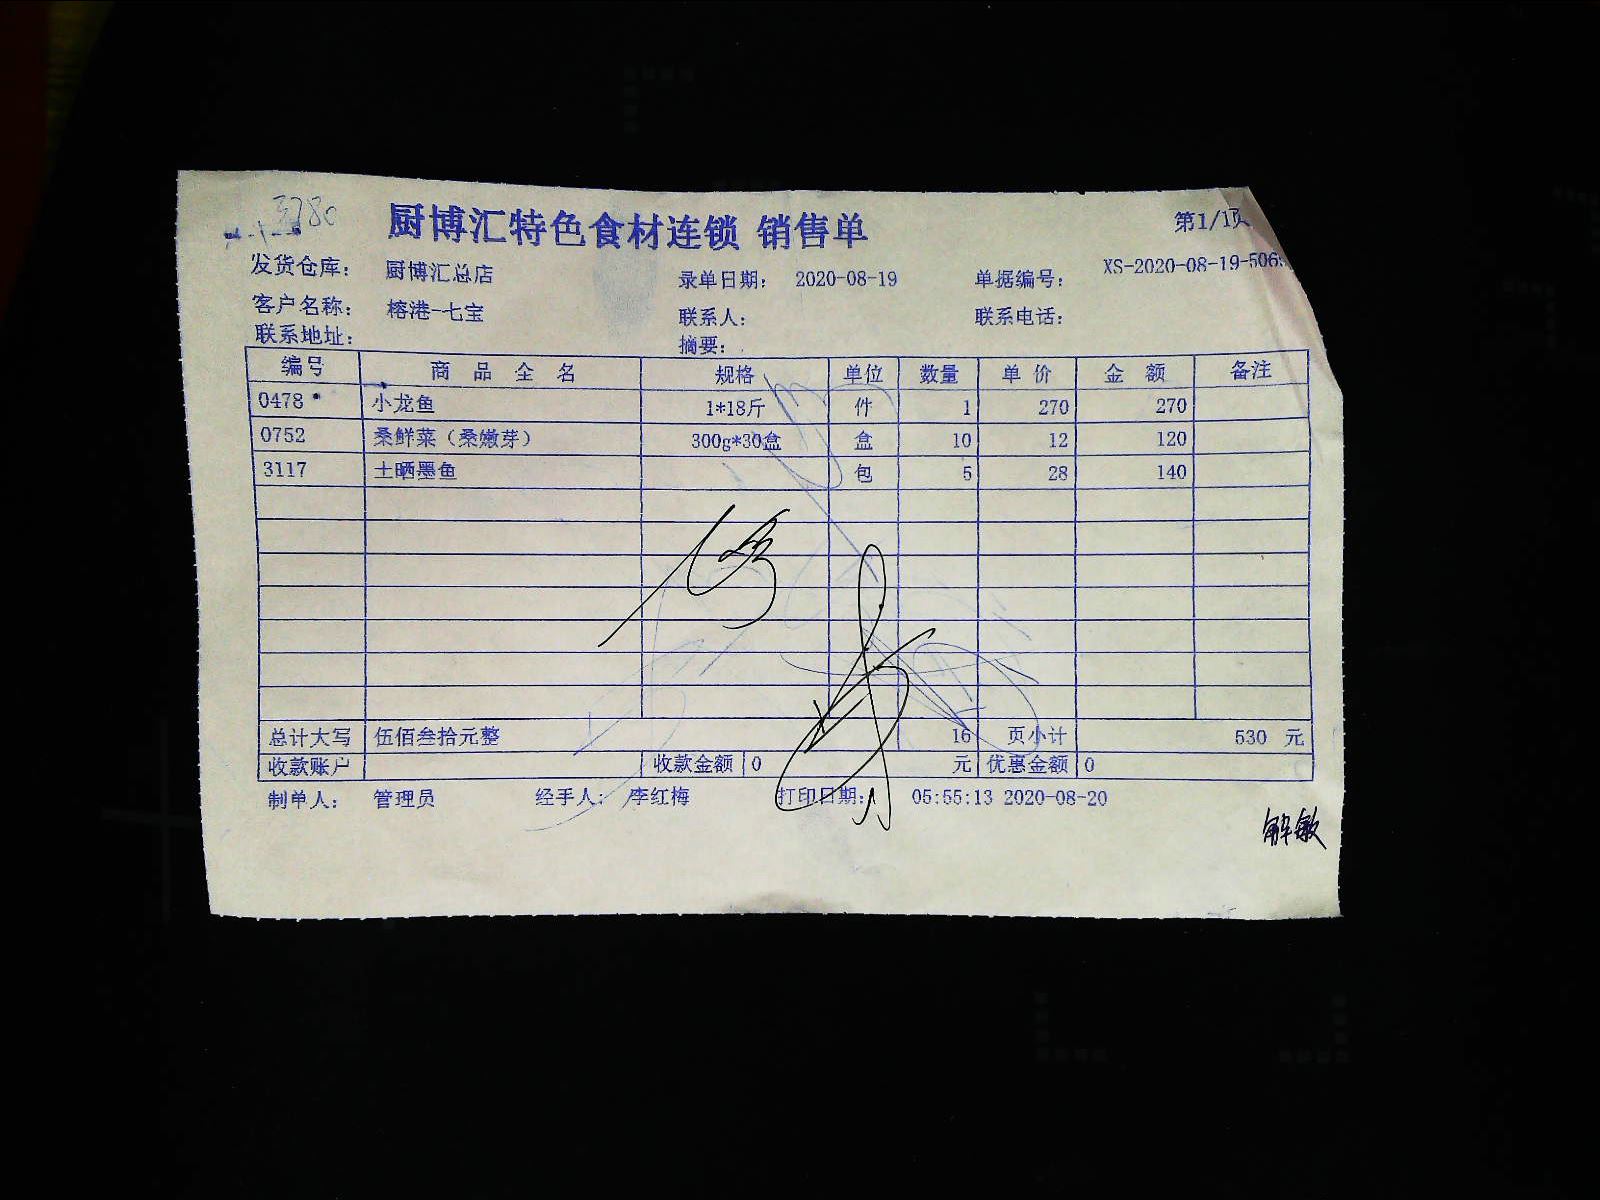 3780
厨博汇特色食材连锁 销售单
第1/1页
发货仓库： 厨博汇总店 录单日期： 2020-08-19 单据编号： XS-2020-08-19-506
客户名称： 榕港-七宝 联系人： 联系电话：
联系地址： 摘要：
编号 商品全名 规格 单位 数量 单价 金额 备注
0478 小龙鱼 1*18斤 件 1 270 270
0752 桑鲜菜（桑嫩芽） 300g*30盒 盒 10 12 120
3117 土晒墨鱼 包 5 28 140
总计大写 伍佰叁拾元整 16 页小计 530 元
收款账户 收款金额 0 元 优惠金额 0
制单人： 管理员 经手人： 李红梅 打印日期： 05:55:13 2020-08-20
解敏